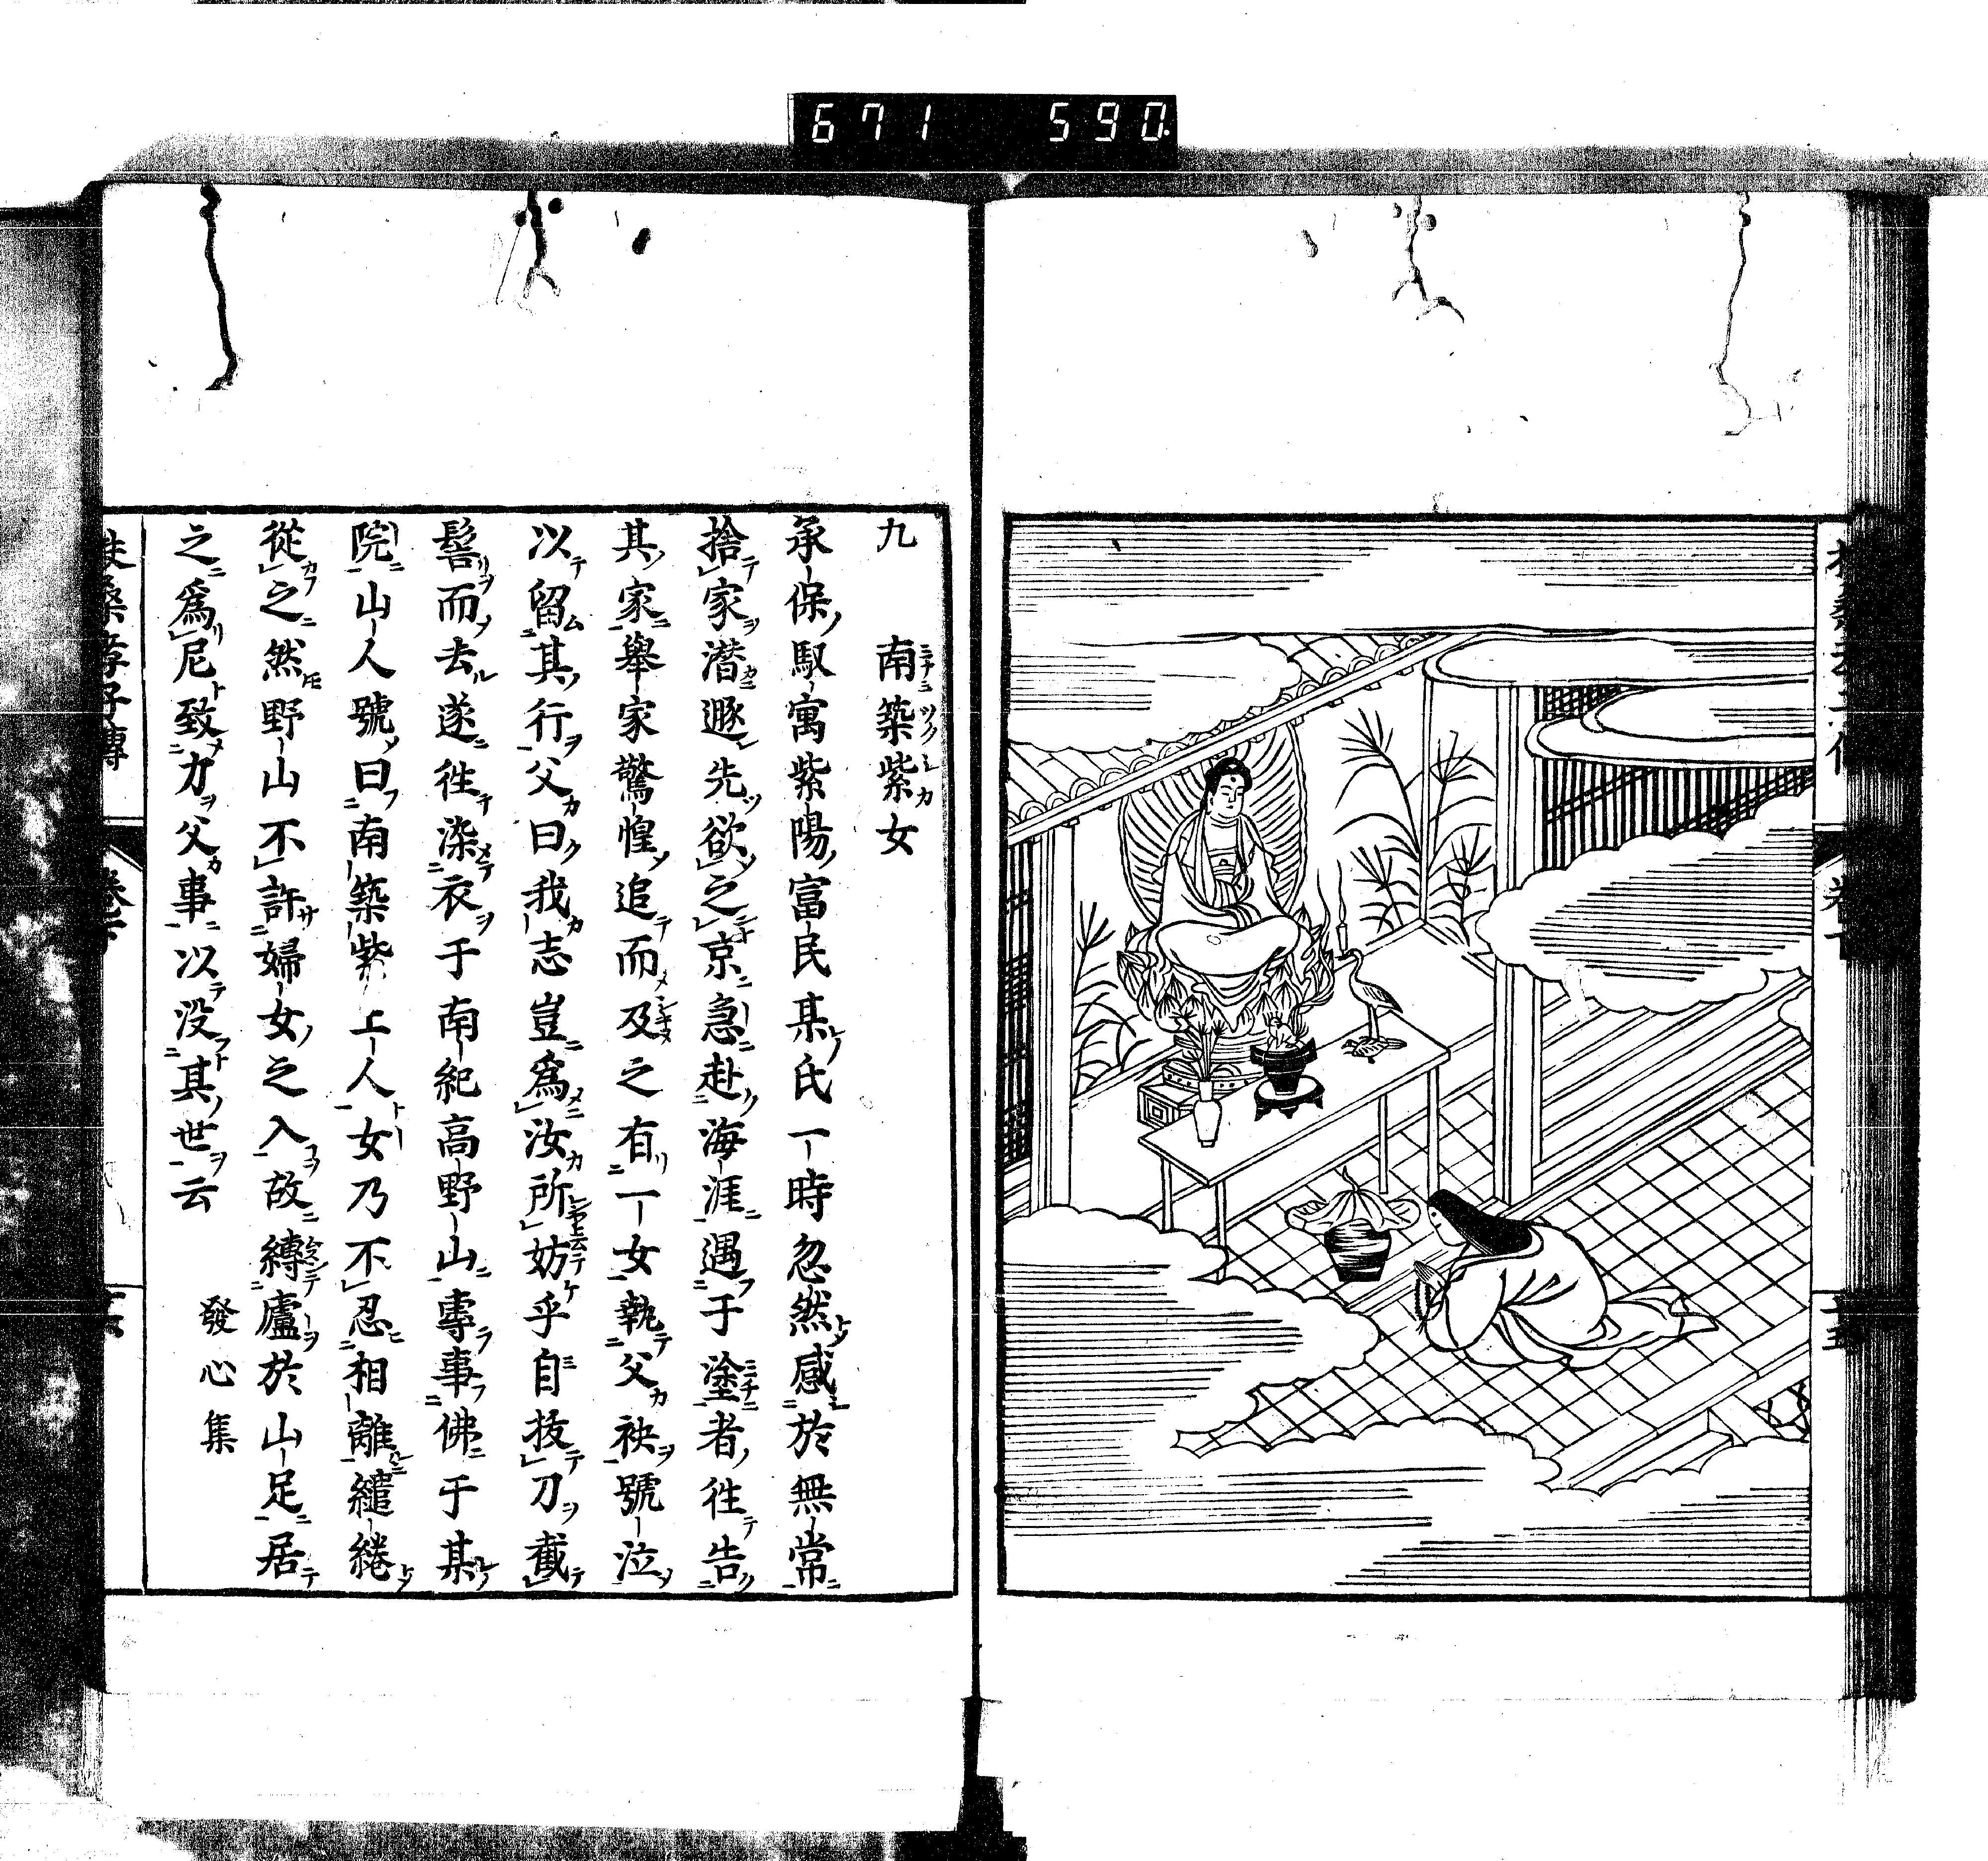 671 590.
九 南築紫女
承保馭寓紫陽富民某氏一時忽然感於無常
捨家潜遯先欲之京急赴海涯遇于塗者徃告
其家舉家驚惶追而及之有一女執父袂號泣
以留其行父曰我志豈爲汝所妨乎自抜刀截
髻而去遂徃染衣于南紀高野山專事佛于某
院山人號曰南築紫上人女乃不忍相離繾綣
從之然野山不許婦女之入故縛廬於山足居
之爲尼致力父事以没其世云
發心集